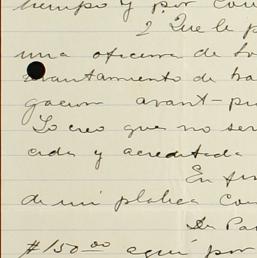 tiempo y por con
2 Que le p
una oficina de
levantamiento de
gacion avant-pr
Yo creo que no ser
cida y acreditada
En fin
de mi platica con
De Pa
#150.00 aquí por